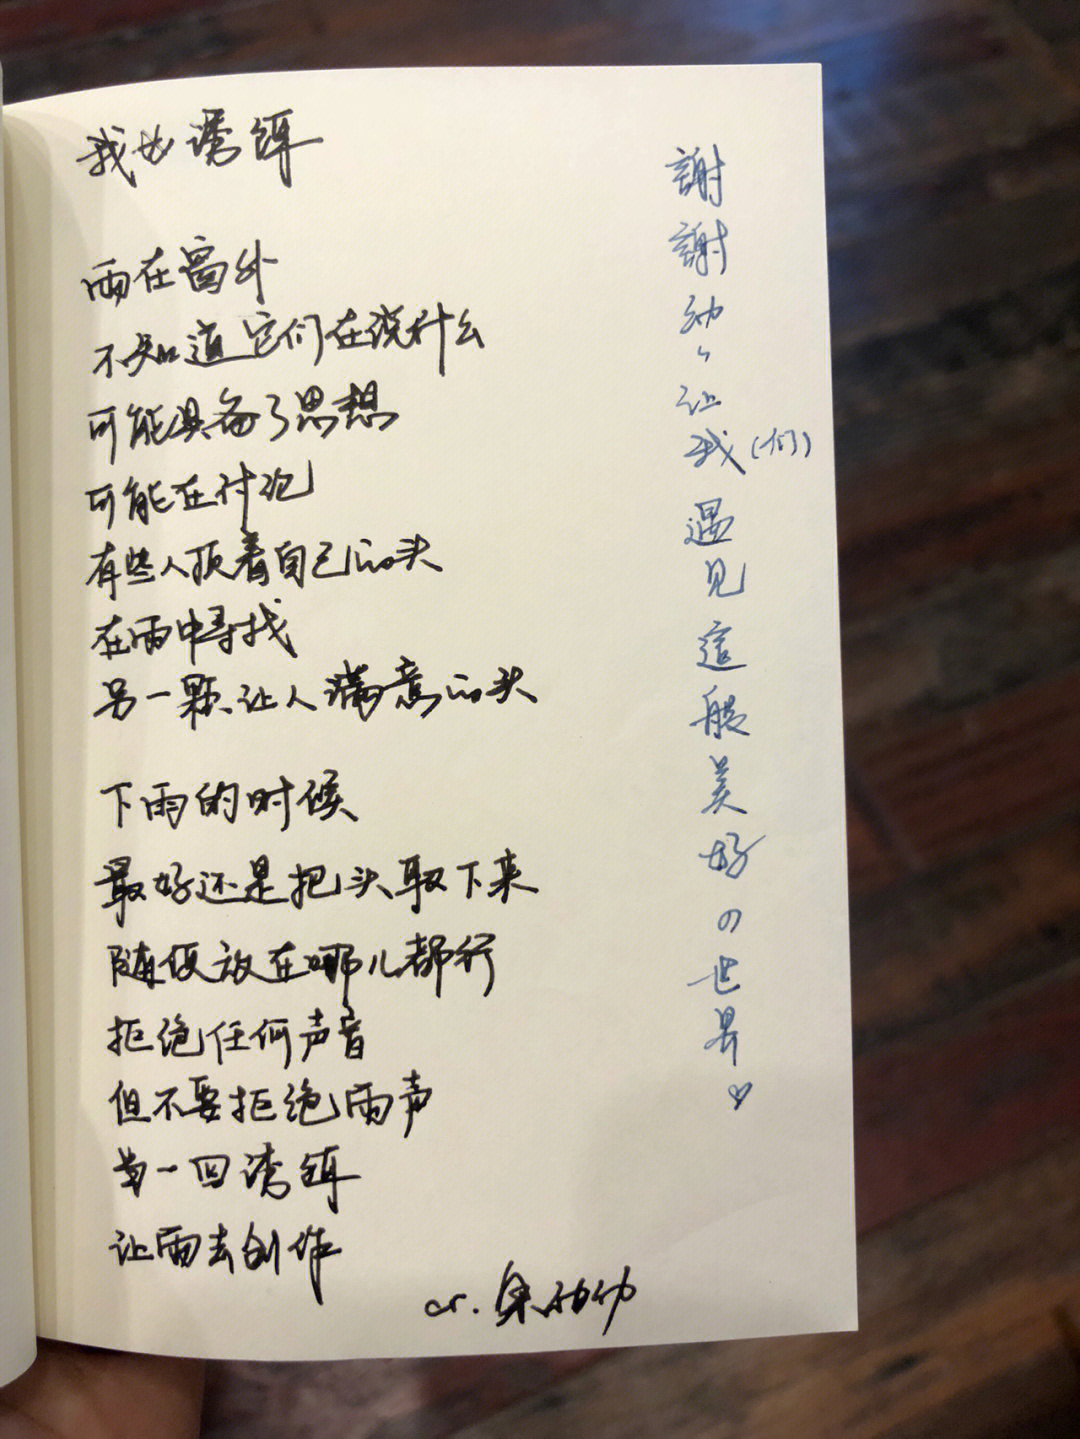 我 诱饵
雨在窗外
不知道它们在说什么
可能具备了思想
可能在讨论
有些人顶着自己的头
在雨中寻找
另一颗让人满意的头
下雨的时候
最好还是把头取下来
随便放在哪儿都行
拒绝任何声音
但不要拒绝雨声
当一回诱饵
让雨去创作
cr. 幼幼
謝謝幼々让我(们)遇见這般美好の世界♡